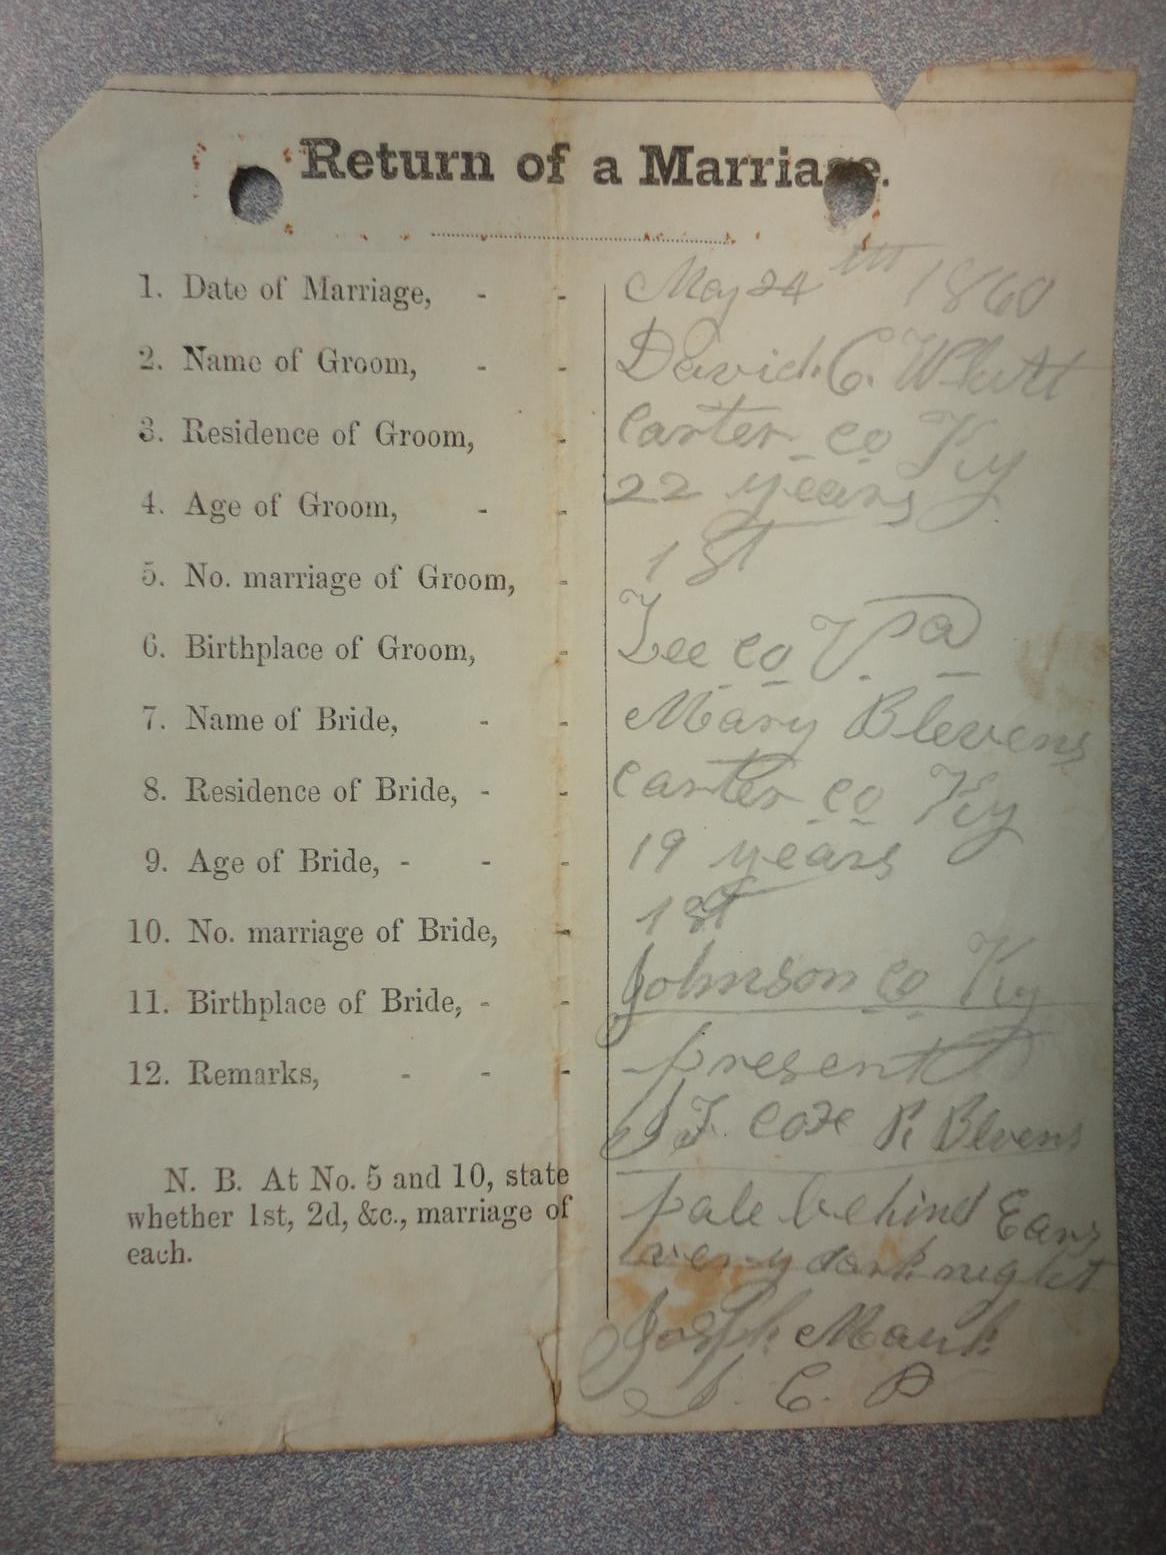 Return of a Marriage.
1. Date of Marriage, - - May 24th 1860
2. Name of Groom, - - David C. Whitt
3. Residence of Groom, - Carter co Ky
4. Age of Groom, - - 22 years
5. No. marriage of Groom, - 1st
6. Birthplace of Groom, - Lee co Va
7. Name of Bride, - - Mary Blevens
8. Residence of Bride, - - Carter co Ky
9. Age of Bride, - - - 19 years
10. No. marriage of Bride, - 1st
11. Birthplace of Bride, - - Johnson co Ky
12. Remarks, - - - present
Coxe Blevens
N. B. At No. 5 and 10, state
whether 1st, 2d, &c., marriage of
each.
pale behind Ears
very dark night
Joseph Mauk
C. P